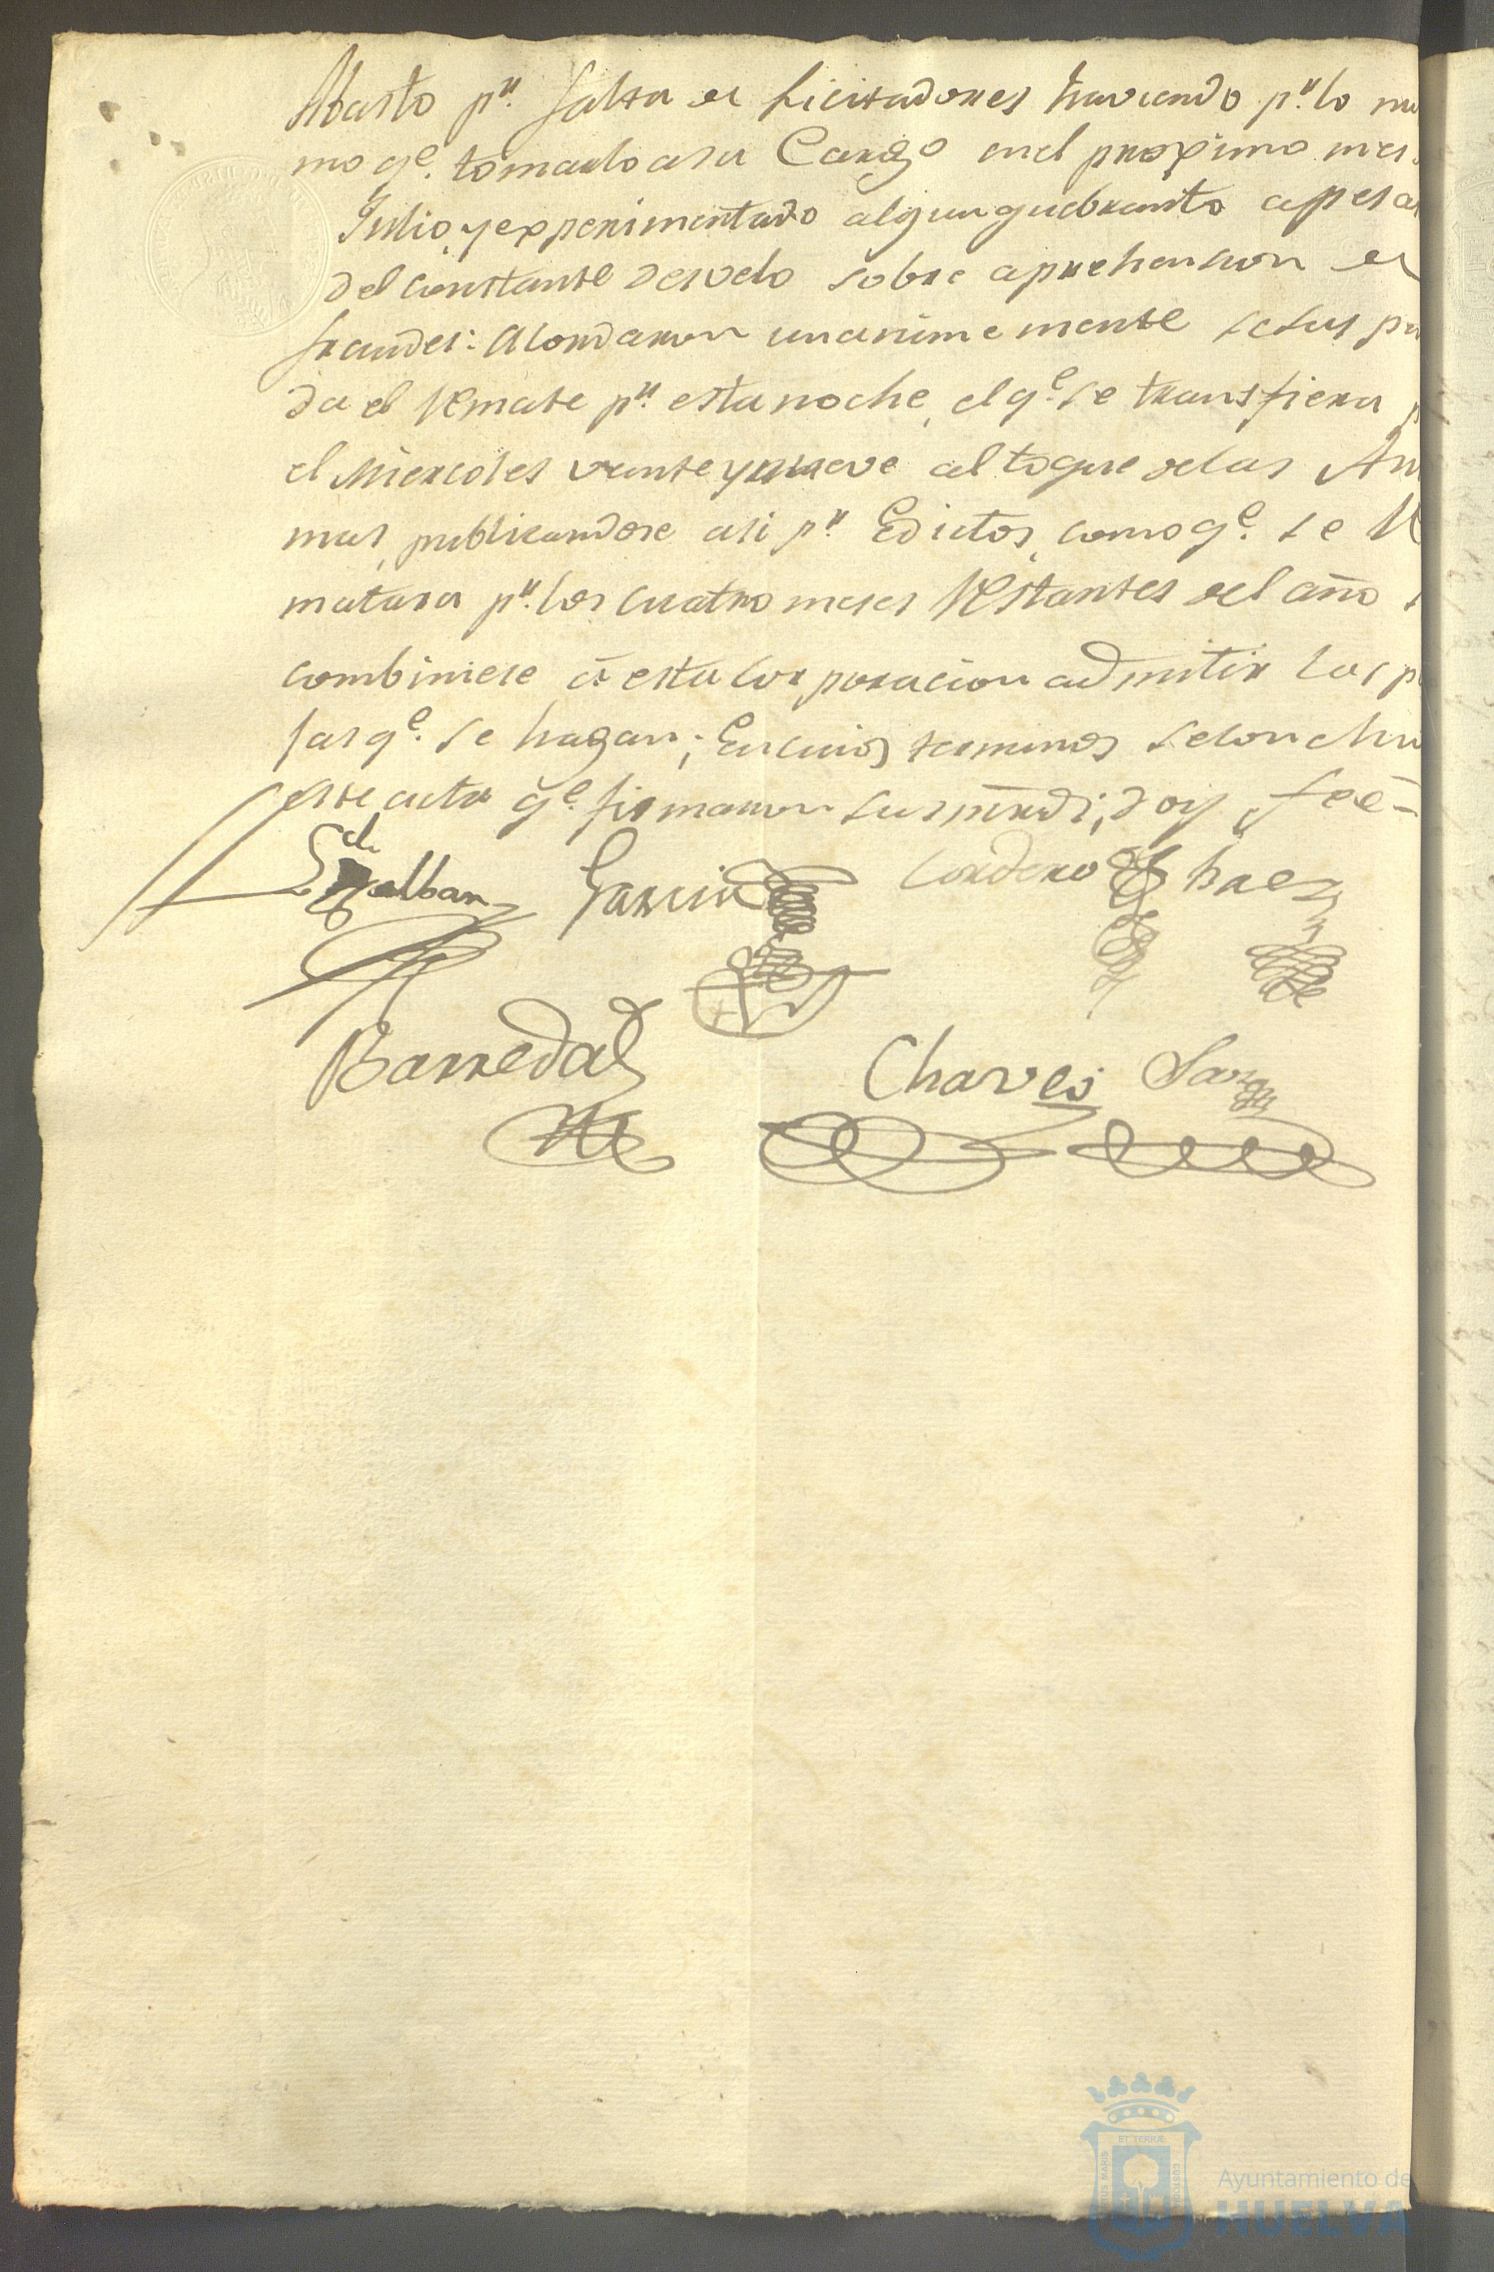 Abasto pr. falta de Licitadores haviendo pr. lo mis
mo qe. tomarlo a su Cargo en el proximo mes
Julio, y experimentado algun quebranto apesar
del constante desvelo sobre aprehension de
fraudes: Acordaron unanimemente se sus pen
da el Remate pa. esta noche, el qe. se transfiera
el Miercoles veinte y nueve al toque de las Ani
mas, publicandose asi pr. Edictos, como qe. se Re
matara pr. los cuatro meses Restantes del año
combiniese á esta Corporacion admitir las
qe. se hagan; En cuios terminos se concluio
este acta qe. firmaron sus mrds; doy feé=
Garcia Cordero
Barreda Chaves
ET TERRÆ
Ayuntamiento de
HUELVA